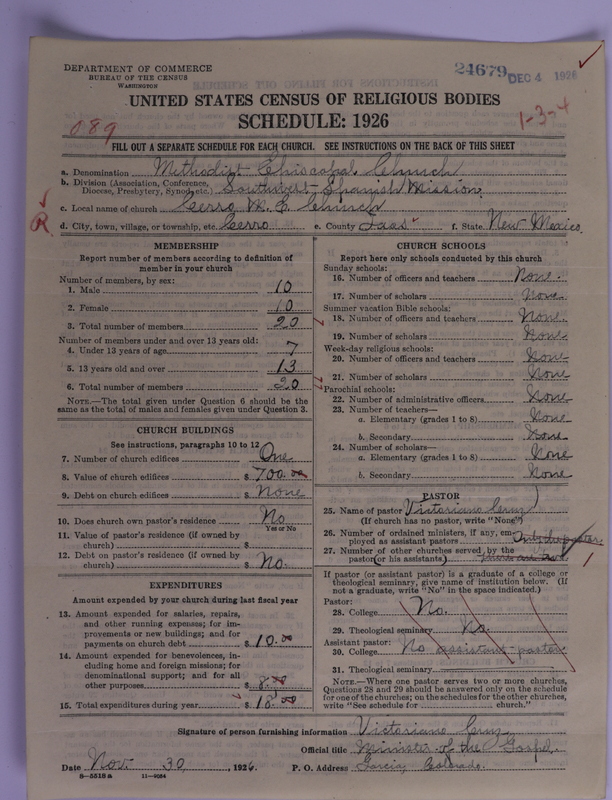 DEPARTMENT OF COMMERCE
BUREAU OF THE CENSUS
WASHINGTON
24679 DEC 4 1926
UNITED STATES CENSUS OF RELIGIOUS BODIES
SCHEDULE: 1926
089
1-3-4
FILL OUT A SEPARATE SCHEDULE FOR EACH CHURCH. SEE INSTRUCTIONS ON THE BACK OF THIS SHEET
a. Denomination Methodist Episcopal Church
b. Division (Association, Conference, Diocese, Presbytery, Synod, etc.) Southwest Spanish Mission
c. Local name of church Cerro M. E. Church
R
d. City, town, village, or township, etc. Cerro e. County Taos f. State New Mexico
MEMBERSHIP
Report number of members according to definition of
member in your church
Number of members, by sex:
1. Male 10
2. Female 10
3. Total number of members 20
Number of members under and over 13 years old:
4. Under 13 years of age 7
5. 13 years old and over 13
6. Total number of members 20
NOTE.—The total given under Question 6 should be
same as the total of males and females given under Question 3.
CHURCH BUILDINGS
See instructions, paragraphs 10 to 12
7. Number of church edifices One
8. Value of church edifices $ 700.00
9. Debt on church edifices $ None
10. Does church own pastor's residence No
Yes or No
11. Value of pastor's residence (if owned by
church) $
12. Debt on pastor's residence (if owned by
church) $ No.
EXPENDITURES
Amount expended by your church during last fiscal year
13. Amount expended for salaries, repairs,
and other running expenses; for im-
provements or new buildings; and for
payments on church debt $ 10.00
14. Amount expended for benevolences, in-
cluding home and foreign missions; for
denominational support; and for all
other purposes $ 8.00
15. Total expenditures during year $ 18.00
CHURCH SCHOOLS
Report here only schools conducted by this church
Sunday schools:
16. Number of officers and teachers None.
17. Number of scholars None
Summer vacation Bible schools:
18. Number of officers and teachers None.
19. Number of scholars None
Week-day religious schools:
20. Number of officers and teachers None
21. Number of scholars None
Parochial schools:
22. Number of administrative officers None
23. Number of teachers—
a. Elementary (grades 1 to 8) None
b. Secondary None
24. Number of scholars—
a. Elementary (grades 1 to 8) None
b. Secondary None
PASTOR
25. Name of pastor Victoriano Cruz
(If church has no pastor, write "None")
26. Number of ordained ministers, if any, em-
ployed as assistant pastors
27. Number of other churches served by the
pastor (or his assistants)
If pastor (or assistant pastor) is a graduate of a college or
theological seminary, give name of institution below. (If
not a graduate, write "No" in the space indicated.)
Pastor:
28. College No.
29. Theological seminary No.
Assistant pastor:
30. College No assistant pastor
31. Theological seminary
NOTE.—Where one pastor serves two or more churches,
Questions 28 and 29 should be answered only on the schedule
for one of the churches; on the schedules for the other churches,
write "See schedule for church."
Signature of person furnishing information Victoriano Cruz
Official title Minister of the Gospel.
Date Nov. 30, 1926. P. O. Address Garcia, Colorado.
8-5518a 11-9084